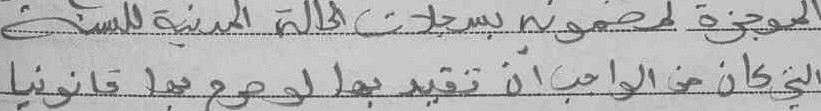 الموجزة لمضمونه بسجلات الحالة المدنية للسنة
التي كان من الواجب أن تقيد بها لو صرح بها قانونيا